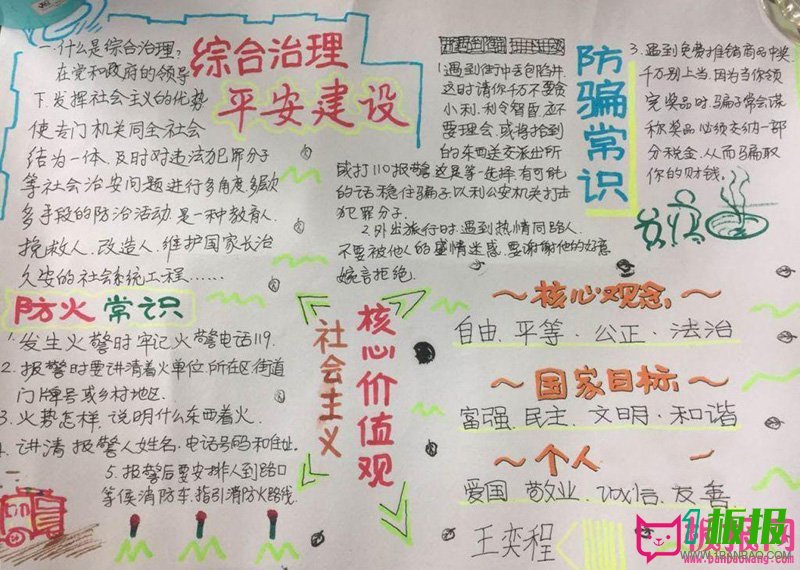 综合治理
平安建设
一.什么是综合治理,
在党和政府的领导
下.发挥社会主义的优势
使专门机关同全社会
结为一体.及时对违法犯罪分子
等社会治安问题进行多角度多
多手段的防治活动.是一种教育人.
挽救人.改造人.维护国家长治
久安的社会系统工程......
防骗常识
1.遇到街中丢包陷井.
这时请你千万不要贪
小利.利令智昏.应不
要理会.或将拾到
的东西送交派出所
或打110报警.这是等一选择.有可能
的话.稳住骗子.以利公安机关打击
犯罪分子.
2.外出旅行时.遇到热情同路人.
不要被他人的盛情迷惑.要谢谢他的好意
婉言拒绝.
3.遇到免费推销商品中奖.
千万别上当.因为当你领
完奖品时.骗子常会谎
称奖品必须交纳一部
分税金.从而骗取
你的财钱.
防火常识
1.发生火警时牢记火警电话119.
2.报警时要讲清着火单位.所在区街道
门牌号或乡村地区.
3.火势怎样,说明什么东西着火.
4.讲清报警人姓名.电话号码和住址.
5.报警后要安排人到路口
等候消防车.指引消防火路线.
社会主义
核心价值观
～核心观念～
自由.平等.公正.法治
～国家目标～
富强.民主.文明.和谐
～个人～
爱国.敬业.诚信.友善
王奕程
板报网
www.banbaowang.com
1板报
www.1banbao.com